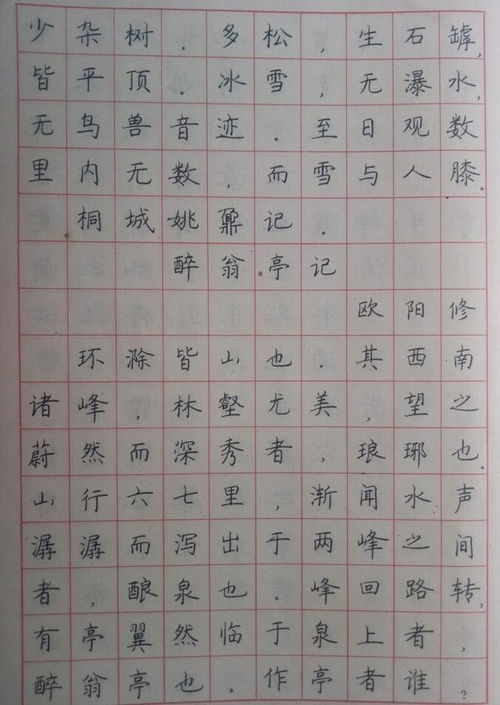 少杂树．多松，生石罅，
皆平顶．冰雪，无瀑水，
无鸟兽音迹．至日观数
里内无数，而雪与人膝．
桐城姚鼐记．
醉翁亭记
欧阳修
环滁皆山也．其西南
诸峰，林壑尤美，望之
蔚然而深秀者，琅琊也．
山行六七里，渐闻水声
潺潺而泻出于两峰之间
者，酿泉也．峰回路转，
有亭翼然临于泉上者，
醉翁亭也。作亭者谁？